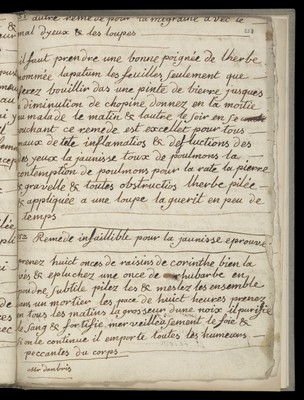 autre remede pour la megraine avec le
mal dyeux & les loupes
il faut prendre une bonne poignée de lherbe
nommée lapatum les feuilles seulement que
ferez bouillir das une pinte de bierre jusques
a diminution de chopine donnez en la moitie
au malade le matin & lautre le soir en se
couchant ce remede est excellet pour tous
maux de tete inflamatios & defluctions des
yeux la jaunisse toux de poulmons la
contemption de poulmons pour la rate la pierre
& gravelle & toutes obstructios lherbe pilée
& appliquée a une loupe la guerit en peu de
temps
Remede infaillible pour la jaunisse eprouvé
prenez huict onces de raisins de corinthe bien la
vés & epluchez une once de rhubarbe en
poudre subtile pilez les & meslez les ensemble
dans un mortier les pace de huict heures prenez
en tous les matins la grosseur dune noix il purifie
le sang & fortifie merveilleusement le foie &
si on le continue il emporte toutes les humeurs
peccantes du corps
Mr danbris